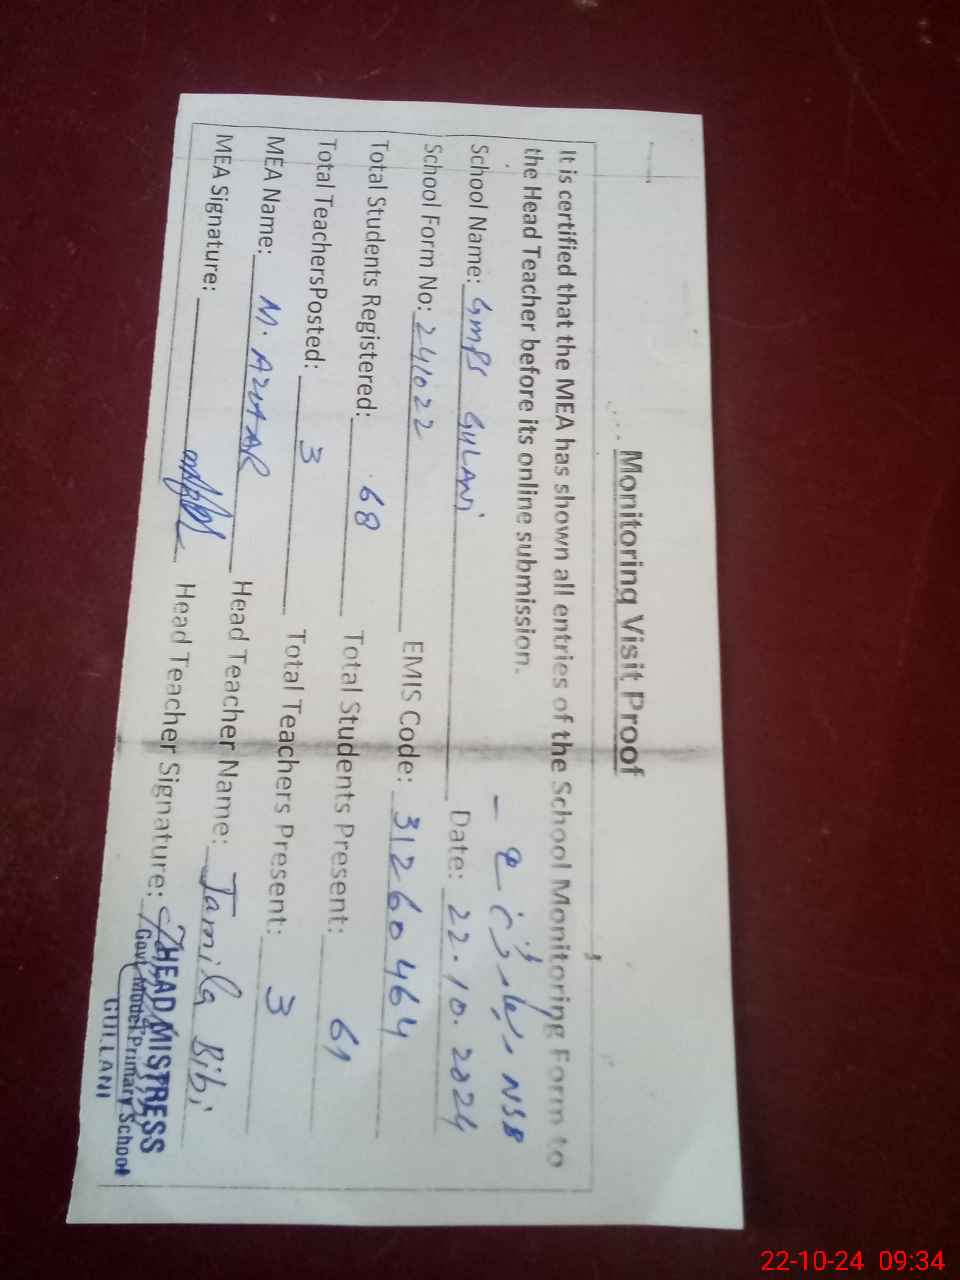 Monitoring Visit Proof
It is certified that the MEA has shown all entries of the School Monitoring Form to
the Head Teacher before its online submission.
NSB
School Name: GMPS GULANi Date: 22.10.2024
School Form No: 241022 EMIS Code: 31260464
Total Students Registered: 68 Total Students Present: 61
Total TeachersPosted: 3 Total Teachers Present: 3
MEA Name: M. AZHAR Head Teacher Name: Jamila Bibi
MEA Signature: Head Teacher Signature:
HEAD MISTRESS
Govt. Model Primary School
GULLANI
22-10-24 09:34